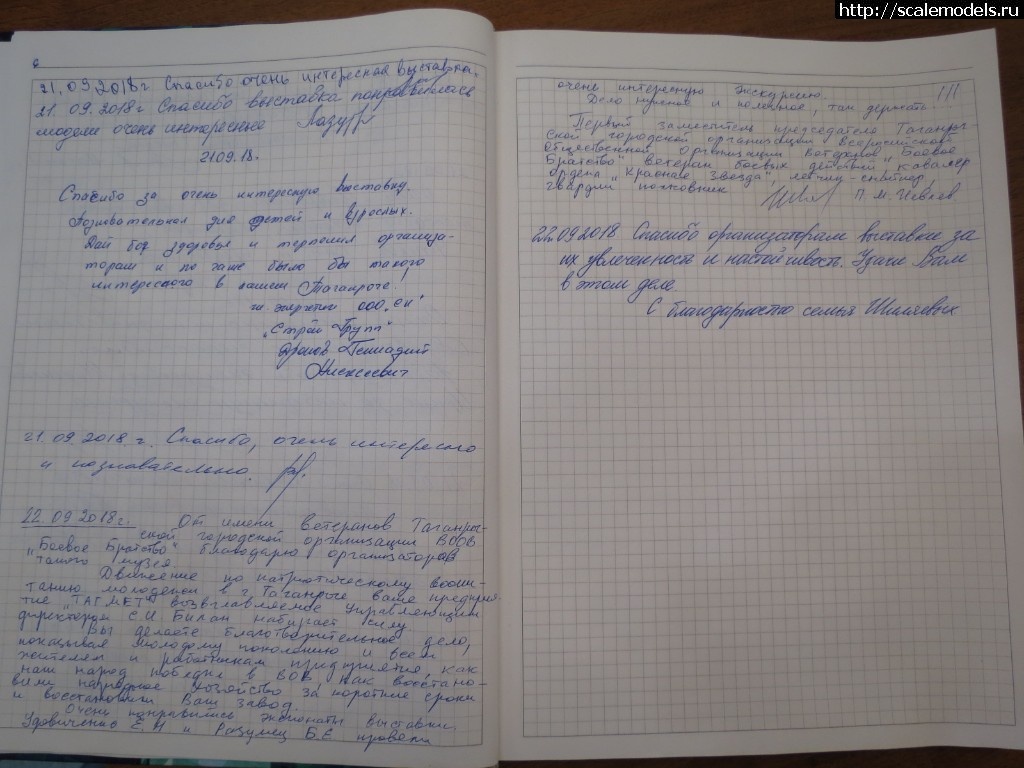 http://scalemodels.ru
6
21.09.2018г Спасибо очень интересная выставка.
21.09.2018г Спасибо выставка понравилась
модели очень интересные
2109.18.
Спасибо за очень интересную выставку.
Познавательная для детей и взрослых.
Дай бог здоровья и терпения организа-
торам и по чаще было бы такого
интересного в нашем Таганроге
ООО "СК"
"Строй Групп"
Геннадий
Алексеевич
21.09.2018г. Спасибо, очень интересно
и познавательно.
22.09.2018г. От имени Ветеранов Таганро-
ской городской организации ВООВ
"Боевое Братство" благодарю организаторов
такого музея.
Движение по патриотическому воспи-
танию молодежи в г. Таганроге ваше предприя-
тие "ТАГМЕТ" возглавляемое Управляющим
директором С.И Билан набирает силу.
Вы делаете благотворительное дело,
показывая молодому поколению и всем
жителям и работникам предприятия как
наш народ победил в ВОВ как восстано-
вили народное хозяйство за короткие сроки
и восстановили Ваш завод.
Очень понравились экспонаты выставки.
Удовиченко Е.Н и Разумец Б.Е провели
очень интересную экскурсию.
Дело нужное и полезное, так держать
!!!
Первый заместитель председателя Таганро
ской городской организации Всероссийской
Общественной Организации Ветеранов "Боевое
Братство" ветеран боевых действий кавалер
ордена "Красная Звезда" летчик-снайпер
гвардии полковник П.М.
22.09.2018 Спасибо организаторам выставки за
их увлеченность и настойчивость. Удачи Вам
в этом деле
С благодарностью семья